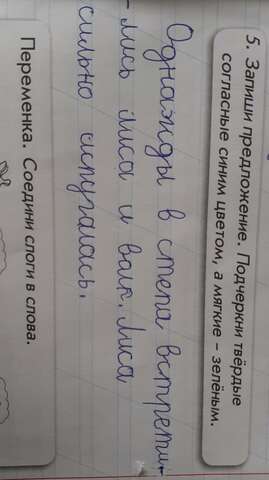 5. Запиши предложение. Подчеркни твёрдые
согласные синим цветом, а мягкие – зелёным.
Однажды в степа встрети-
-лись лиса и вага. Лиса
сильно испугалась.
Переменка. Соедини слоги в слова.